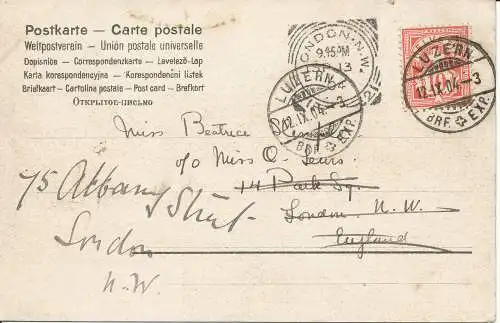 Postkarte – Carte postale
Weltpostverein – Union postale universelle
Dopisnice – Correspondenzkarte – Levelező-Lap
Karta korespondencyjna – Korespondenční lístek
Briefkaart – Cartolina postale – Post card – Brefkort
Открытое письмо
LONDON. N.W.
9.15 PM
SP 13
04
LUZERN
12.IX.04.–3
BRF. EXP.
LUZERN
12.IX.04.–3
BRF. EXP.
Miss Beatrice
c/o Miss O. Sears.
14 Park Sq.
London. N. W.
England
75 Albany
Street
London
N.W.